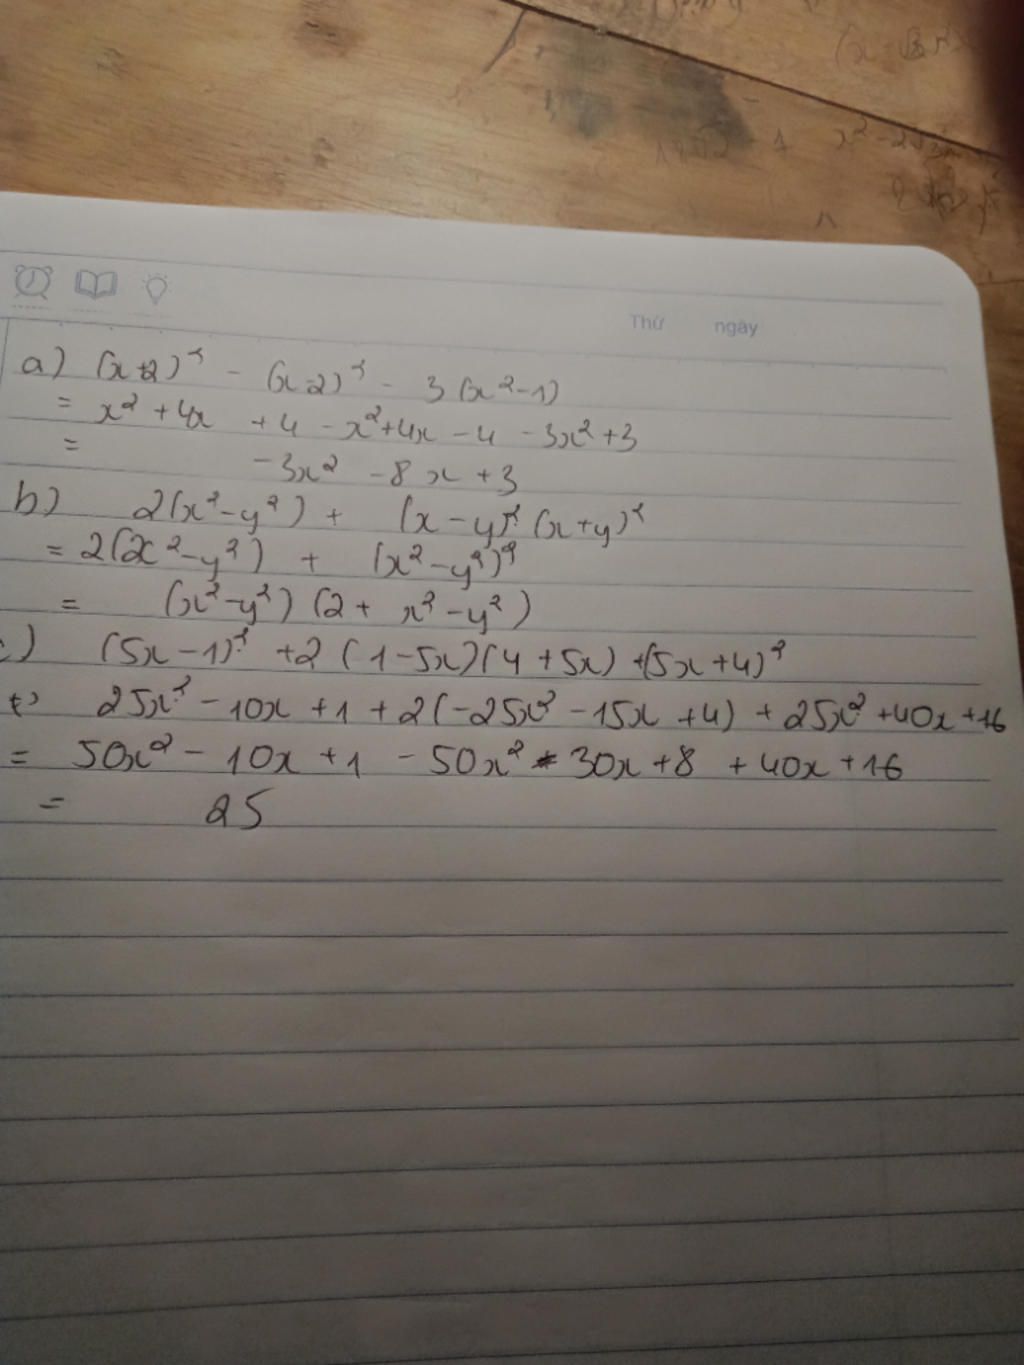 Thứ ngày
a) (x+2)² - (x-2)² - 3(x²-1)
= x² + 4x + 4 - x² + 4x - 4 - 3x² + 3
= -3x² - 8x + 3
b) 2(x²-y²) + (x-y)² (x+y)²
= 2(x²-y²) + (x²-y²)²
= (x²-y²) (2 + x²-y²)
c) (5x-1)² + 2(1-5x)(4+5x) + (5x+4)²
= 25x² - 10x + 1 + 2(-25x² - 15x + 4) + 25x² + 40x + 16
= 50x² - 10x + 1 - 50x² - 30x + 8 + 40x + 16
= 25